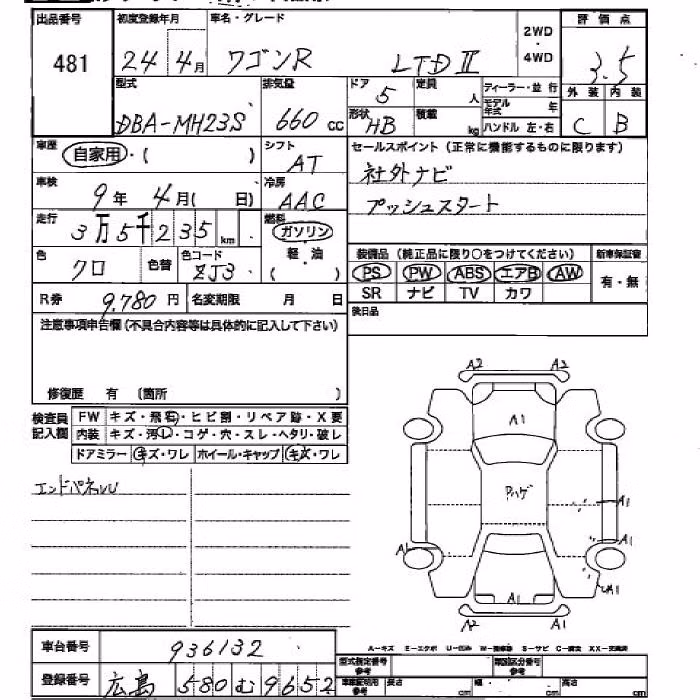 出品番号 初度登録年月 車名・グレード 2WD・4WD 評価点
481 24年4月 ワゴンR LTDⅡ 3.5
型式 排気量 ドア 5 定員 人 ディーラー・並行 外装 内装
DBA-MH23S 660cc 形状 HB 積載 kg モデル年式 年 ハンドル 左・右 C B
車歴 自家用・( ) シフト AT セールスポイント (正常に機能するものに限ります)
社外ナビ
車検 9年 4月( 日) 冷房 AAC プッシュスタート
走行 3万5千235km 燃料 ガソリン 軽・油 ( )
装備品 (純正品に限り○をつけてください) 新車保証書
色 クロ 色替 色コード ZJ3 PS PW ABS エアB AW 有・無
R券 9,780円 名変期限 月 日 SR ナビ TV カワ
後日品
注意事項申告欄 (不具合内容等は具体的に記入して下さい)
修復歴 有 〔箇所 〕
検査員記入欄 FW キズ・飛石・ヒビ割・リペア跡・X要
内装 キズ・汚し・コゲ・穴・スレ・ヘタリ・破レ
ドアミラー キズ・ワレ ホイール・キャップ キズ・ワレ
エンドパネルU
A2 A2
A1
Pハゲ
A1
A1
A1
A1
A2 A1
A-キズ E-エクボ U-凹み W-補修跡 S-サビ C-腐食 XX-交換済
車台番号 936132
登録番号 広島 580 む 9652
型式指定番号 参考 類別区分番号 参考
車庫証明用 参考 長さ cm 幅 cm 高さ cm